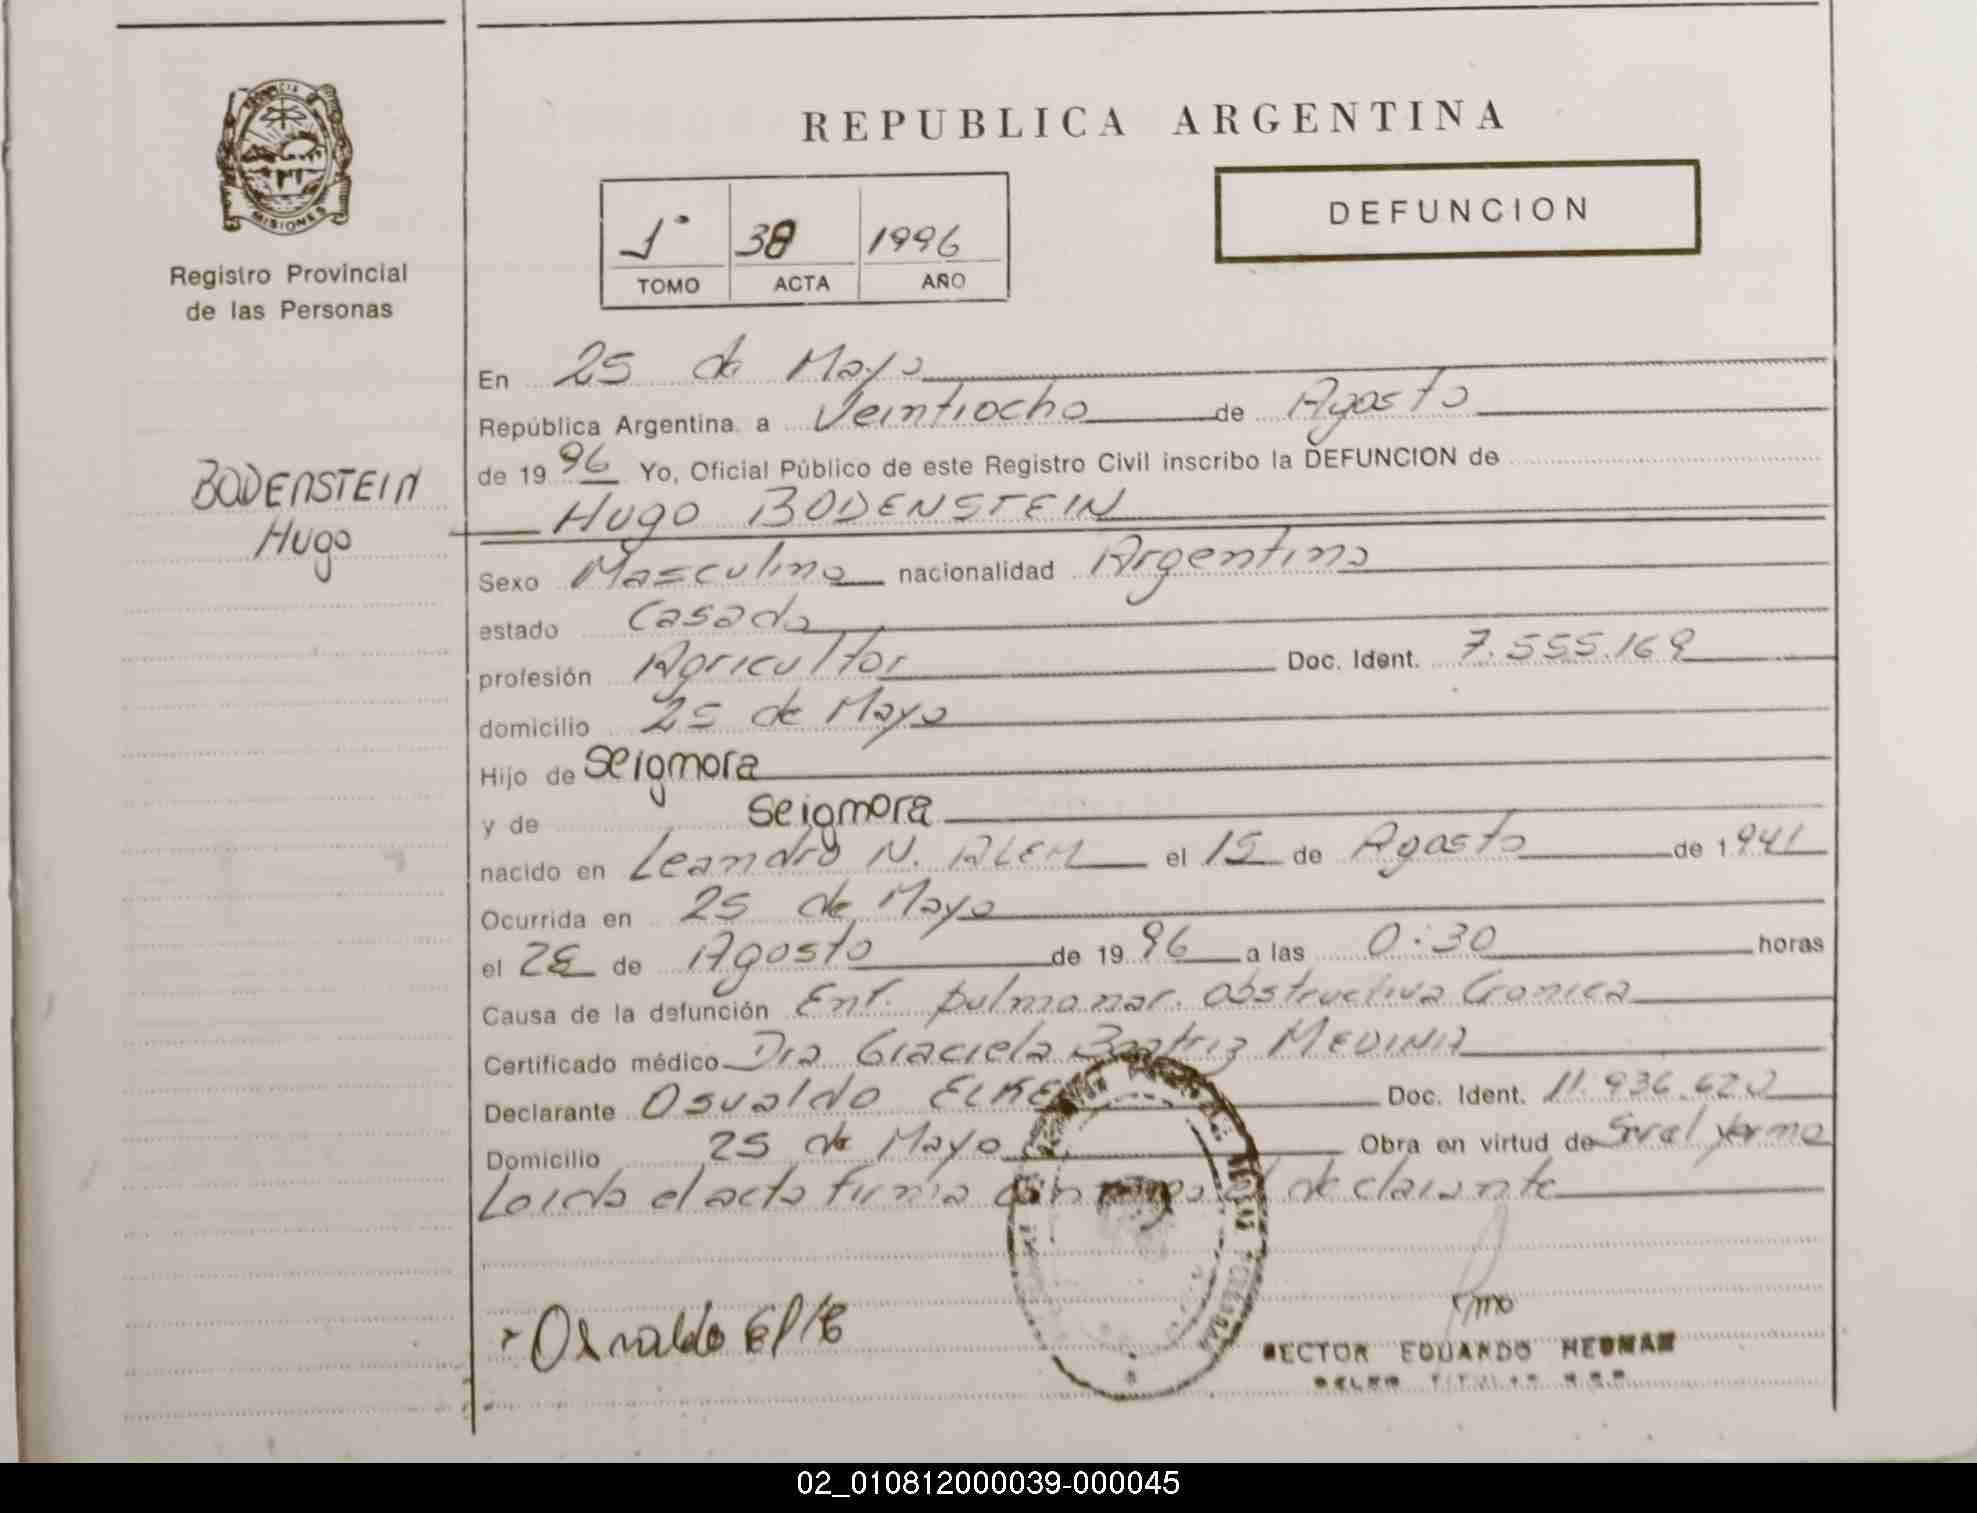 PROVINCIA D
MISIONES
Registro Provincial
de las Personas
BODENSTEIN
Hugo
REPUBLICA ARGENTINA
1° 38 1996
TOMO ACTA AÑO
DEFUNCION
En 25 de Mayo
República Argentina a Veintiocho de Agosto
de 1996 Yo, Oficial Público de este Registro Civil inscribo la DEFUNCION de
Hugo BODENSTEIN
Sexo Masculino nacionalidad Argentina
estado Casado
profesión Agricultor Doc. Ident. 7.555.169
domicilio 25 de Mayo
Hijo de seigmora
y de seigmora
nacido en Leandro N. ALEM el 15 de Agosto de 1941
Ocurrida en 25 de Mayo
el 28 de Agosto de 1996 a las 0:30 horas
Causa de la defunción Enf. pulmonar. obstructiva Cronica
Certificado médico Dra Graciela Beatriz MEDINA
Declarante Osvaldo ELKE Doc. Ident. 11.936.620
Domicilio 25 de Mayo Obra en virtud de Sival yerno
Loida el acta firma conmigo el declarante
Osvaldo Elke
HECTOR EDUARDO
TITULAR
02_010812000039-000045